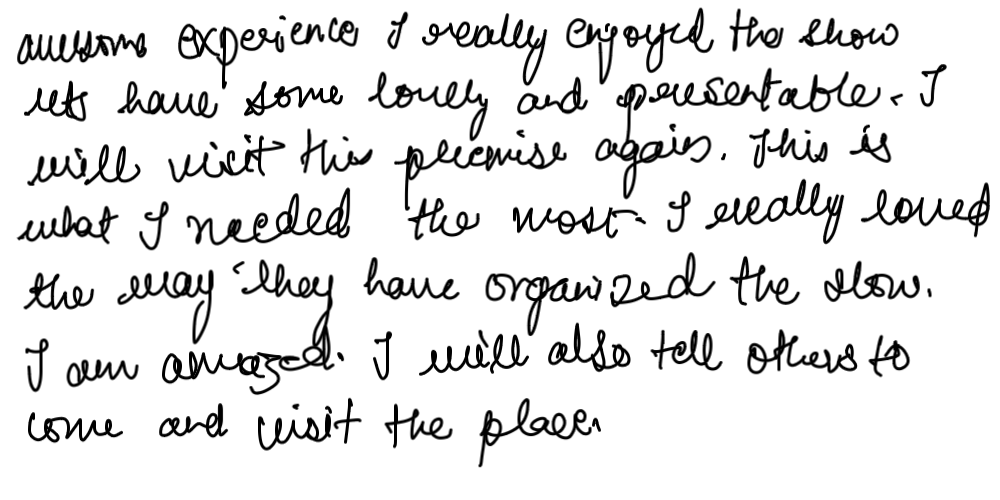 awesome experience I really enjoyed the show
lets have some lovely and presentable. I
will visit this premise again. This is
what I needed the most. I really loved
the way they have organized the show.
I am amazed. I will also tell others to
come and visit the place.